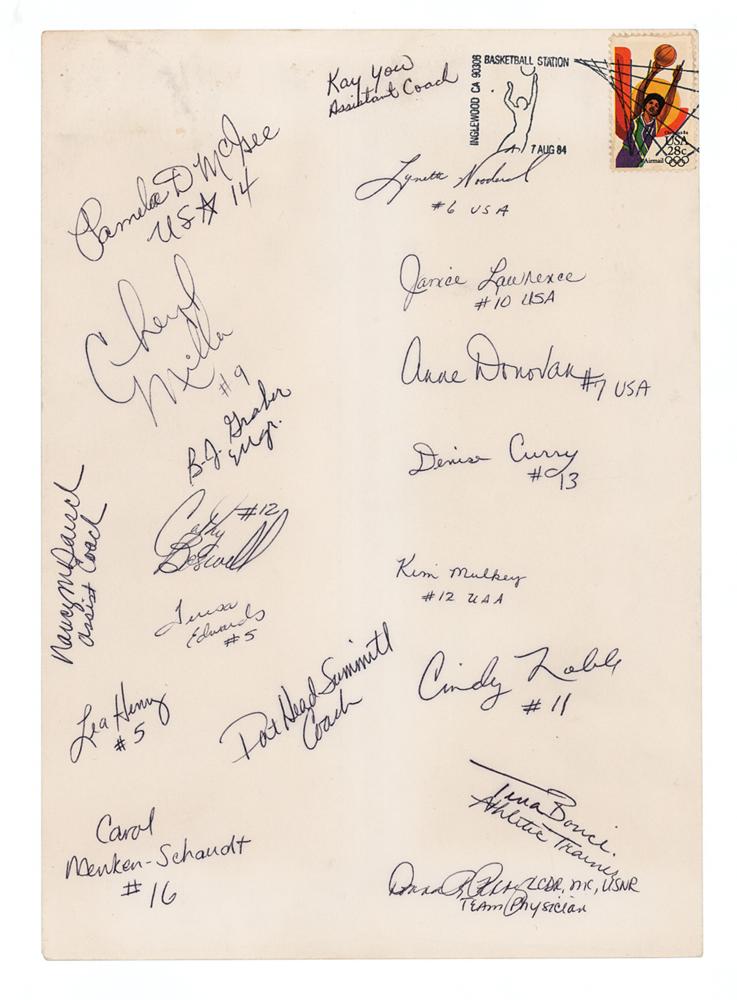 Kay Yow
Assistant Coach
INGLEWOOD CA 90306
BASKETBALL STATION
7 AUG 84
USA
28c
Airmail
Pamela D McGee
US☆ 14
Lynette Woodard
#6 USA
Janice Lawrence
#10 USA
Cheryl
Miller
#9
Anne Donovan #7 USA
B.J. Graber
Mgr.
Denise Curry
#13
Nancy M Darsch
Assist Coach
Cathy #12
Boswell
Kim Mulkey
#12 USA
Teresa
Edwards
#5
Cindy Noble
#11
Lea Henry
#5
Pat Head Summitt
Coach
Tina Bonci
Athletic Trainer
Carol
Menken-Schaudt
#16
LCDR, MC, USNR
Team Physician